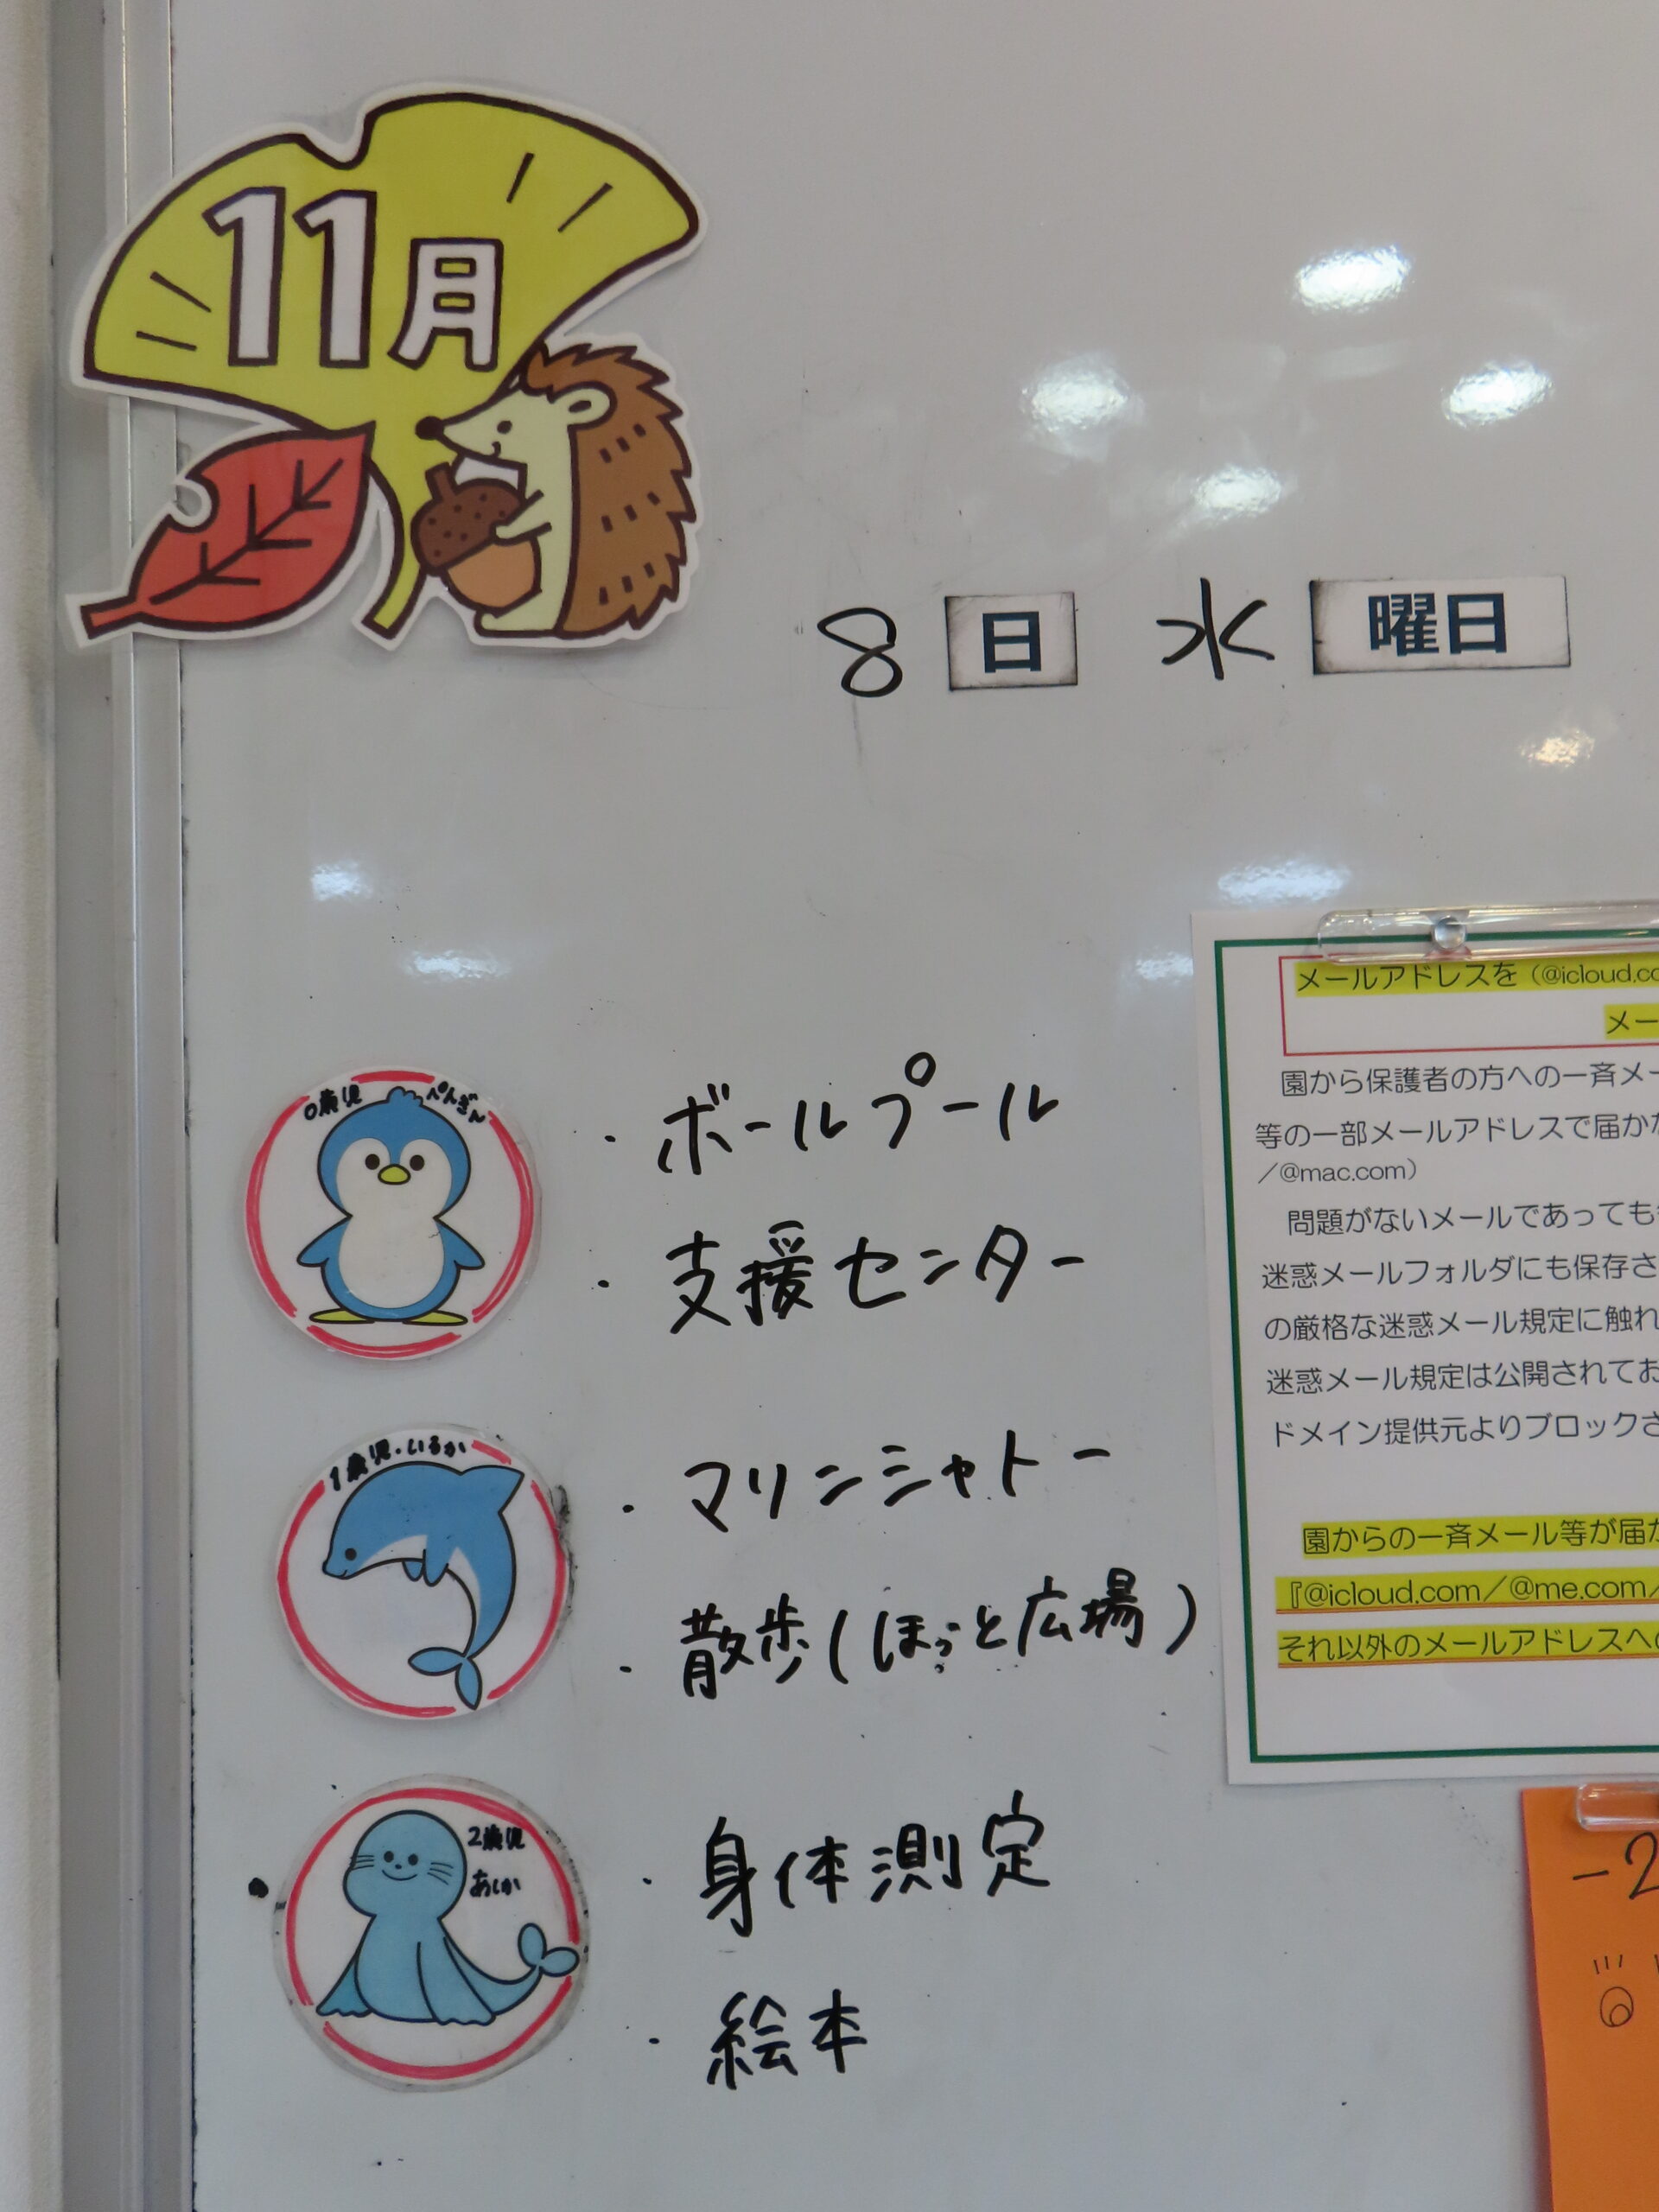 11月
8日 水曜日
0歳児 ぺんぎん
・ボールプール
・支援センター
1歳児・いるか
・マリンシャトー
・散歩(ほっと広場)
2歳児
あしか
・身体測定
・絵本
メールアドレスを(@icloud.co
メー
園から保護者の方への一斉メー
等の一部メールアドレスで届か
/@mac.com)
問題がないメールであっても
迷惑メールフォルダにも保存さ
の厳格な迷惑メール規定に触れ
迷惑メール規定は公開されてお
ドメイン提供元よりブロックさ
園からの一斉メール等が届か
『@icloud.com/@me.com/
それ以外のメールアドレスへ
-2